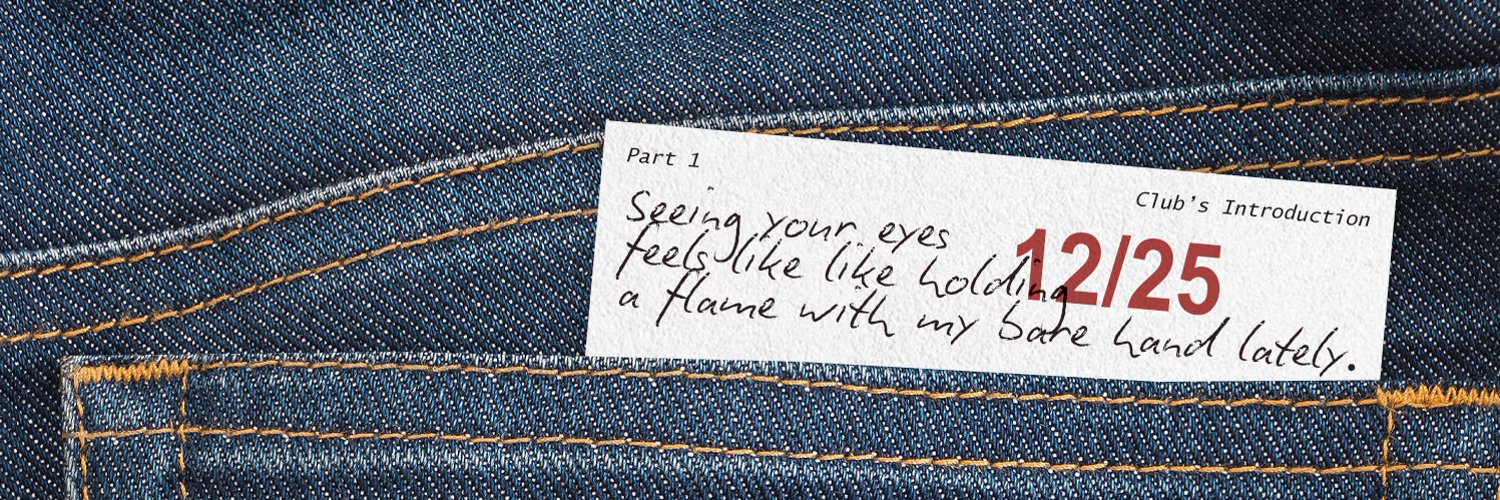 Part 1
Club's Introduction
12/25
Seeing your eyes
feels like like holding
a flame with my bare hand lately.